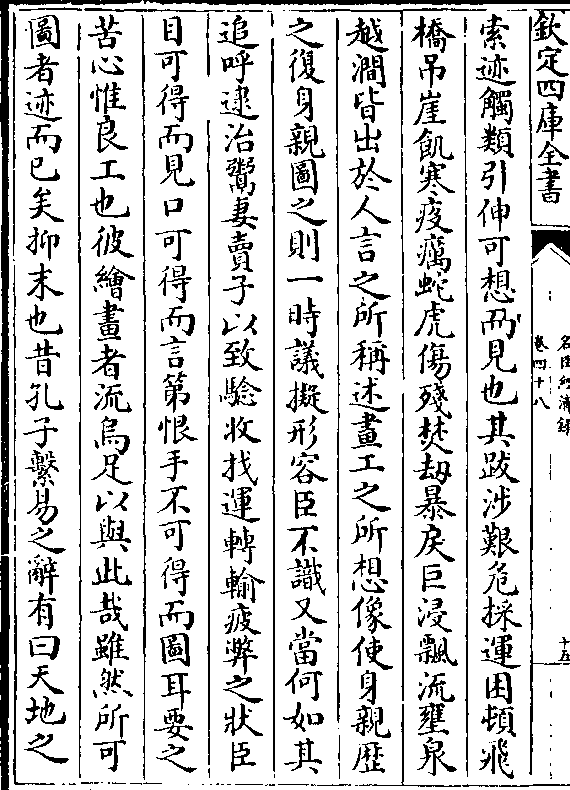 欽定四庫全書
名臣經濟録
卷四十八
十五
索迹觸類引伸可想而見也其跋涉艱危採運困頓飛
橋吊崖飢寒疫癘蛇虎傷殘焚刼暴戾巨浸飄流壅泉
越澗皆出於人言之所稱述畫工之所想像使身親歴
之復身親圖之則一時議擬形容臣不識又當何如其
追呼逮治鬻妻賣子以致驗收找運轉輸疲弊之狀臣
目可得而見口可得而言第恨手不可得而圖耳要之
苦心惟良工也彼繪畫者流烏足以與此哉雖然所可
圖者迹而已矣抑末也昔孔子繫易之辭有曰天地之